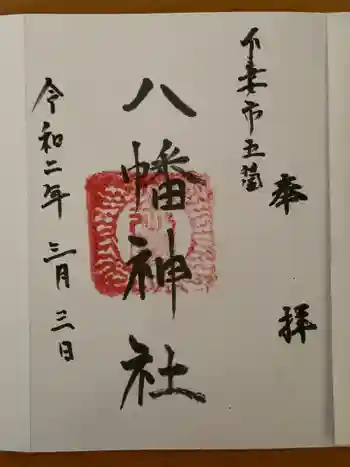 奉拝
下妻市五箇
八幡神社
令和二年 三月三日